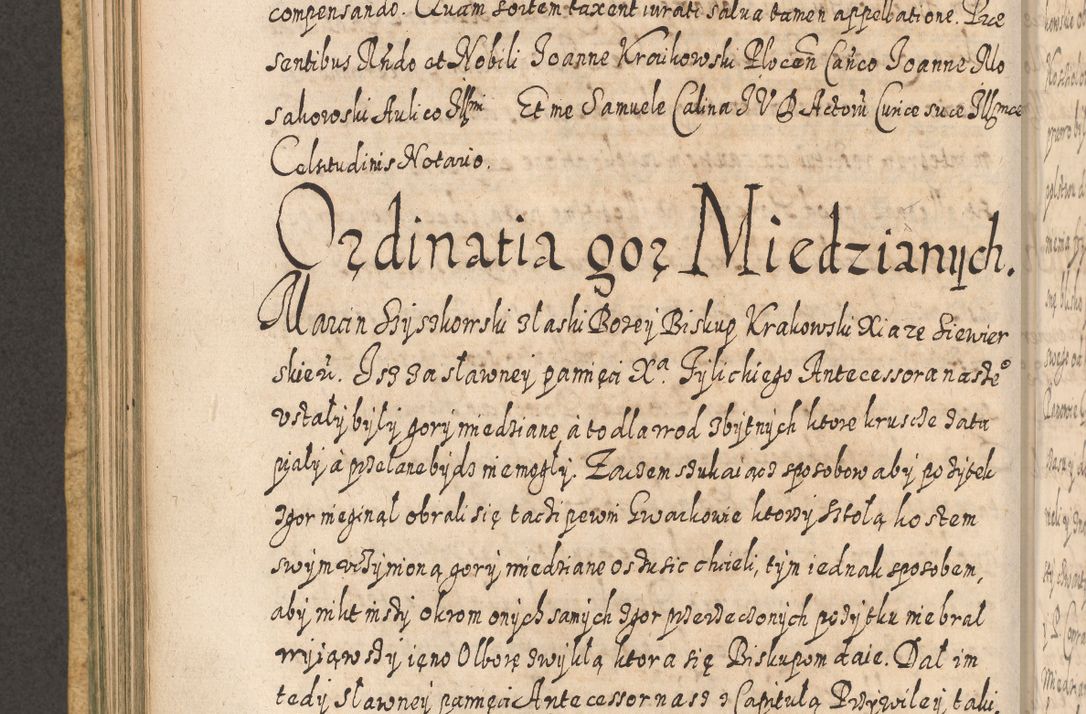 compensando. Quam sortem taxent iurati salua tamen appellatione. Præ
sentibus Rñdo et Nobili Joanne Kraikowski Plocen Canco Joanne Ilo
sakowski Aulico Illmi Et me Samuele Calina JVD Actorũ Curiæ suæ Illmæ
Celsitudinis Notario.
Ordinatia gor Miedzianych.
Marcin Szyszkowski z łaski Bozey Biskup Krakowski Xiaze Siewier
skieū. Isz za sławney pamięci Xa. Tylickiego Antecessora nasze°
vstały były gory miedziane, à to dla wod zbytnych ktore krusze zata
piały à przelane bydz nie mogły. Zaczem szukaiącz sposobow aby pozytek
z gor nie ginął obrali się taczi pewni Gwarkowie ktorzy sztolą kosztem
swym vczynioną gory miedziane osuszic chcieli, tym iednak sposobem,
aby nikt inszy okrom onych samych z gor przerzeczonych pozytku nie brał
wyiąwszy ieno Olborę zwykłą ktora się Biskupom daie. Dał im
tedy sławney pamięci Antecessor nasz z Capitułą Przywiley taki,